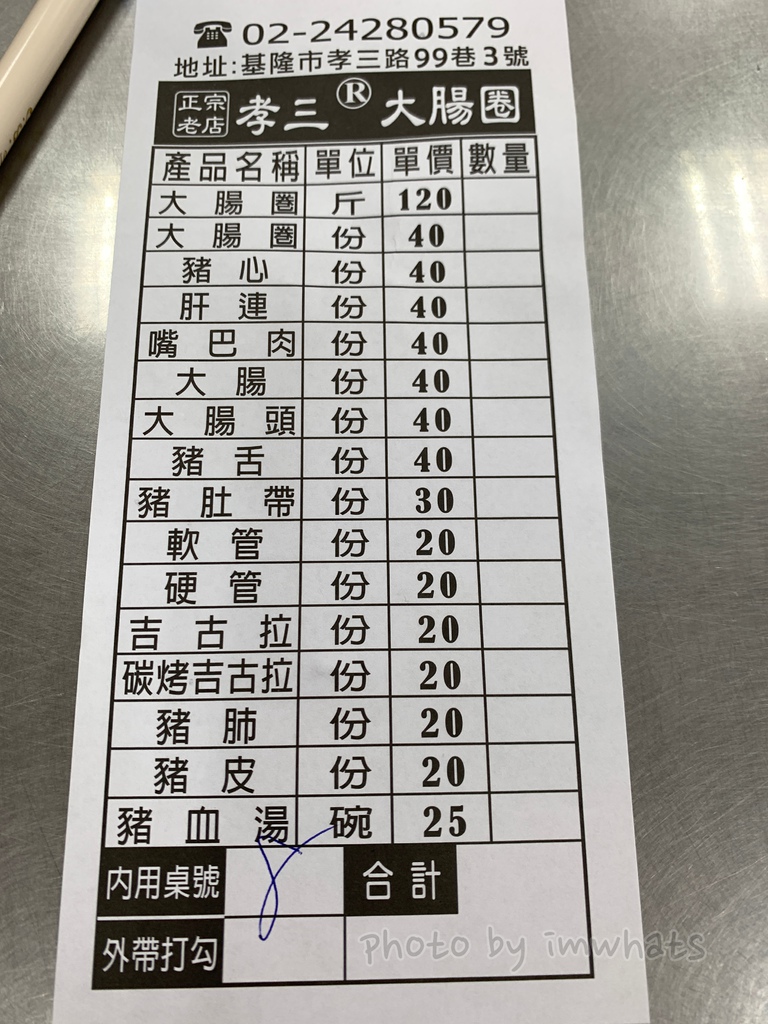 ☎ 02-24280579
地址:基隆市孝三路99巷3號
正宗老店 孝三® 大腸圈
產品名稱 單位 單價 數量
大腸圈 斤 120
大腸圈 份 40
豬心 份 40
肝連 份 40
嘴巴肉 份 40
大腸 份 40
大腸頭 份 40
豬舌 份 40
豬肚帶 份 30
軟管 份 20
硬管 份 20
吉古拉 份 20
碳烤吉古拉 份 20
豬肺 份 20
豬皮 份 20
豬血湯 碗 25
內用桌號 8 合計
外帶打勾
photo by imwhats